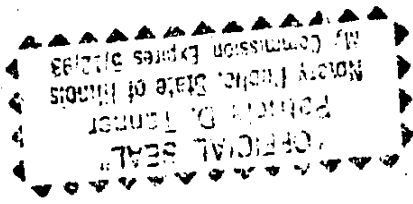 "OFFICIAL SEAL"
Patricia D. Tanner
Notary Public, State of Illinois
My Commission Expires 5/12/93